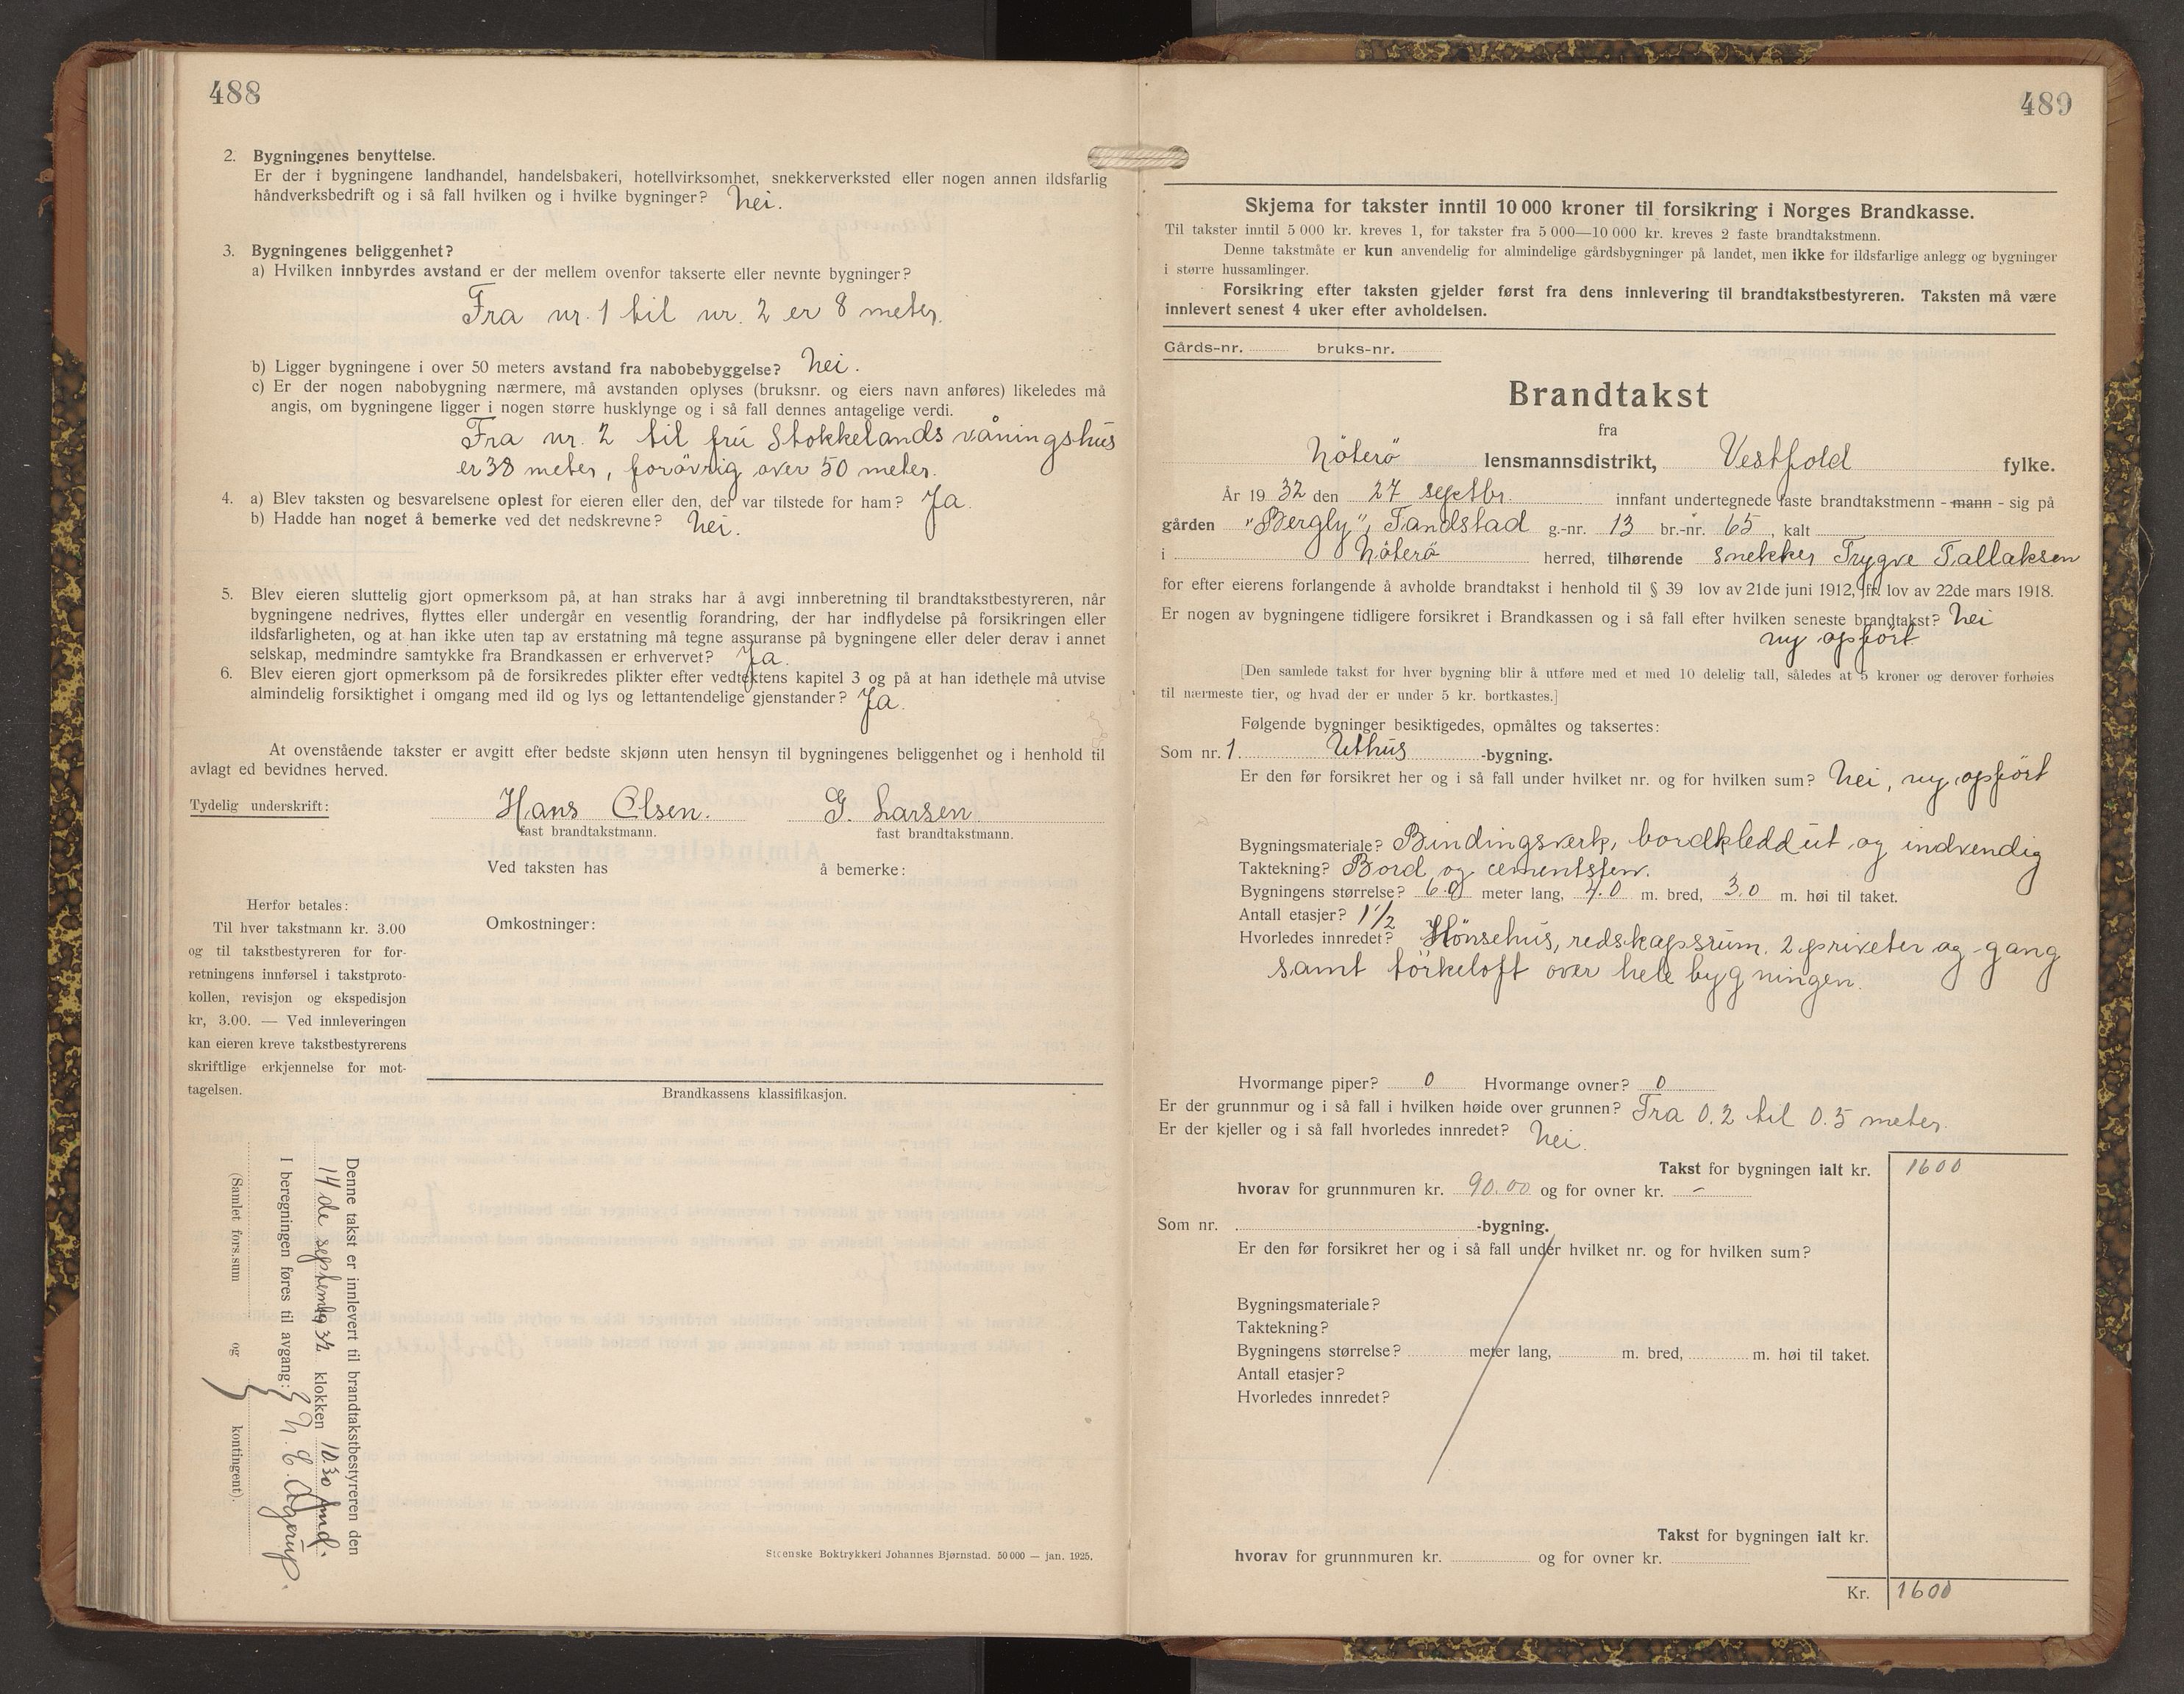 488
2. Bygningenes benyttelse.
Er der i bygningene landhandel, handelsbakeri, hotellvirksomhet, snekkerverksted eller nogen annen ildsfarlig
håndverksbedrift og i så fall hvilken og i hvilke bygninger? Nei.
3. Bygningenes beliggenhet?
a) Hvilken innbyrdes avstand er der mellem ovenfor takserte eller nevnte bygninger?
Fra nr. 1 til nr. 2 er 8 meter.
b) Ligger bygningene i over 50 meters avstand fra nabobebyggelse? Nei.
c) Er der nogen nabobygning nærmere, må avstanden oplyses (bruksnr. og eiers navn anføres) likeledes må
angis, om bygningene ligger i nogen større husklynge og i så fall dennes antagelige verdi.
Fra nr. 2 til fru Stokkelands våningshus
er 38 meter, forøvrig over 50 meter.
4. a) Blev taksten og besvarelsene oplest for eieren eller den, der var tilstede for ham? Ja.
b) Hadde han noget å bemerke ved det nedskrevne? Nei.
5. Blev eieren sluttelig gjort opmerksom på, at han straks har å avgi innberetning til brandtakstbestyreren, når
bygningene nedrives, flyttes eller undergår en vesentlig forandring, der har indflydelse på forsikringen eller
ildsfarligheten, og at han ikke uten tap av erstatning må tegne assuranse på bygningene eller deler derav i annet
selskap, medmindre samtykke fra Brandkassen er erhvervet? Ja.
6. Blev eieren gjort opmerksom på de forsikredes plikter efter vedtektens kapitel 3 og på at han idethele må utvise
almindelig forsiktighet i omgang med ild og lys og lettantendelige gjenstander? Ja.
At ovenstående takster er avgitt efter bedste skjønn uten hensyn til bygningenes beliggenhet og i henhold til
avlagt ed bevidnes herved.
Tydelig underskrift: Hans Olsen. G. Larsen
fast brandtakstmann. fast brandtakstmann.
Ved taksten has å bemerke:
Omkostninger:
Herfor betales:
Til hver takstmann kr. 3.00
og til takstbestyreren for for-
retningens innførsel i takstproto-
kollen, revisjon og ekspedisjon
kr, 3.00. — Ved innleveringen
kan eieren kreve takstbestyrerens
skriftlige erkjennelse for mot-
tagelsen.
Brandkassens klassifikasjon.
Denne takst er innlevert til brandtakstbestyreren den
14 de september 1932 klokken 10.30 fmd.
I beregningen føres til avgang: N. C. Agerup.
(Samlet fors.sum og kontingent).
Steenske Boktrykkeri Johannes Bjørnstad. 50 000 — jan. 1925.
489
Skjema for takster inntil 10 000 kroner til forsikring i Norges Brandkasse.
Til takster inntil 5 000 kr. kreves 1, for takster fra 5 000—10 000 kr. kreves 2 faste brandtakstmenn.
Denne takstmåte er kun anvendelig for almindelige gårdsbygninger på landet, men ikke for ildsfarlige anlegg og bygninger
i større hussamlinger.
Forsikring efter taksten gjelder først fra dens innlevering til brandtakstbestyreren. Taksten må være
innlevert senest 4 uker efter avholdelsen.
Gårds-nr. bruks-nr.
Brandtakst
fra
Nöterö lensmannsdistrikt, Vestfold fylke.
År 1932 den 27 septbr. innfant undertegnede faste brandtakstmenn - mann - sig på
gården "Bergly", Tandstad g.-nr. 13 br.-nr. 65, kalt
i Nöterö herred, tilhørende snekker Trygve Tallaksen
for efter eierens forlangende å avholde brandtakst i henhold til § 39 lov av 21de juni 1912, jfr. lov av 22de mars 1918.
Er nogen av bygningene tidligere forsikret i Brandkassen og i så fall efter hvilken seneste brandtakst? Nei
ny opfört
[Den samlede takst for hver bygning blir å utføre med et med 10 delelig tall, således at 5 kroner og derover forhøies
til nærmeste tier, og hvad der er under 5 kr. bortkastes.]
Følgende bygninger besiktigedes, opmåltes og taksertes:
Som nr. 1. Uthus -bygning.
Er den før forsikret her og i så fall under hvilket nr. og for hvilken sum? Nei, ny opfört
Bygningsmateriale? Bindingsverk, bordkledd ut og indvendig
Taktekning? Bord og cementsten.
Bygningens størrelse? 6.0 meter lang, 4.0 m. bred, 3.0 m. høi til taket.
Antall etasjer? 1 1/2
Hvorledes innredet? Hönsehus, redskapsrum. 2 priveter og gang
samt törkeloft over hele bygningen.
Hvormange piper? 0 Hvormange ovner? 0
Er der grunnmur og i så fall i hvilken høide over grunnen? Fra 0.2 til 0.5 meter.
Er der kjeller og i så fall hvorledes innredet? Nei.
Takst for bygningen ialt kr. 1600
hvorav for grunnmuren kr. 90.00 og for ovner kr. –
Som nr. -bygning.
Er den før forsikret her og i så fall under hvilket nr. og for hvilken sum?
Bygningsmateriale?
Taktekning?
Bygningens størrelse? meter lang, m. bred, m. høi til taket.
Antall etasjer?
Hvorledes innredet?
Takst for bygningen ialt kr.
hvorav for grunnmuren kr. og for ovner kr.
Kr. 1600